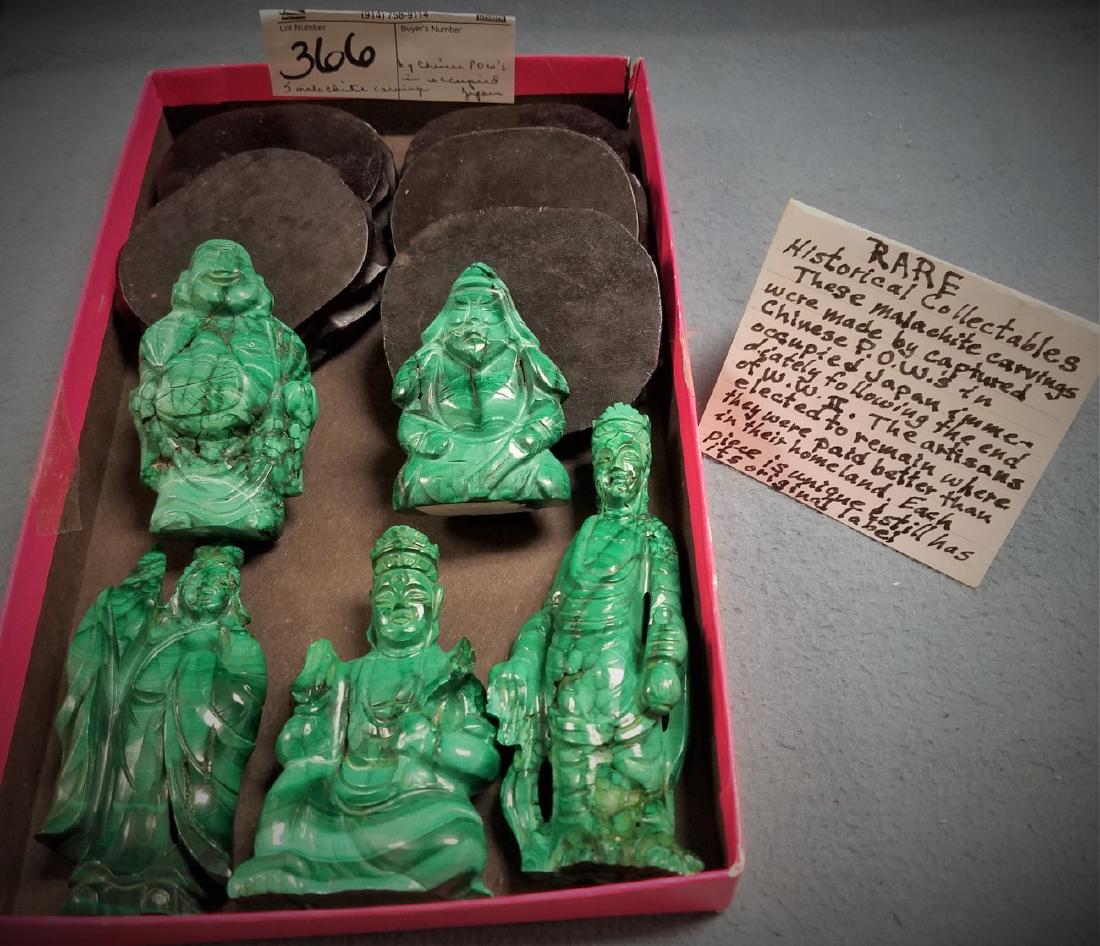 (914) 758-9114
Lot Number
Buyer's Number
366
by Chinese POW's
in occupied
Japan
5 malachite carving
RARE
Historical Collectables
These malachite carvings
were made by captured
Chinese P.O.W.s in
occupied Japan imme-
diately following the end
of W.W.II. The artisans
elected to remain where
they were paid better than
in their homeland. Each
piece is unique & still has
its original label